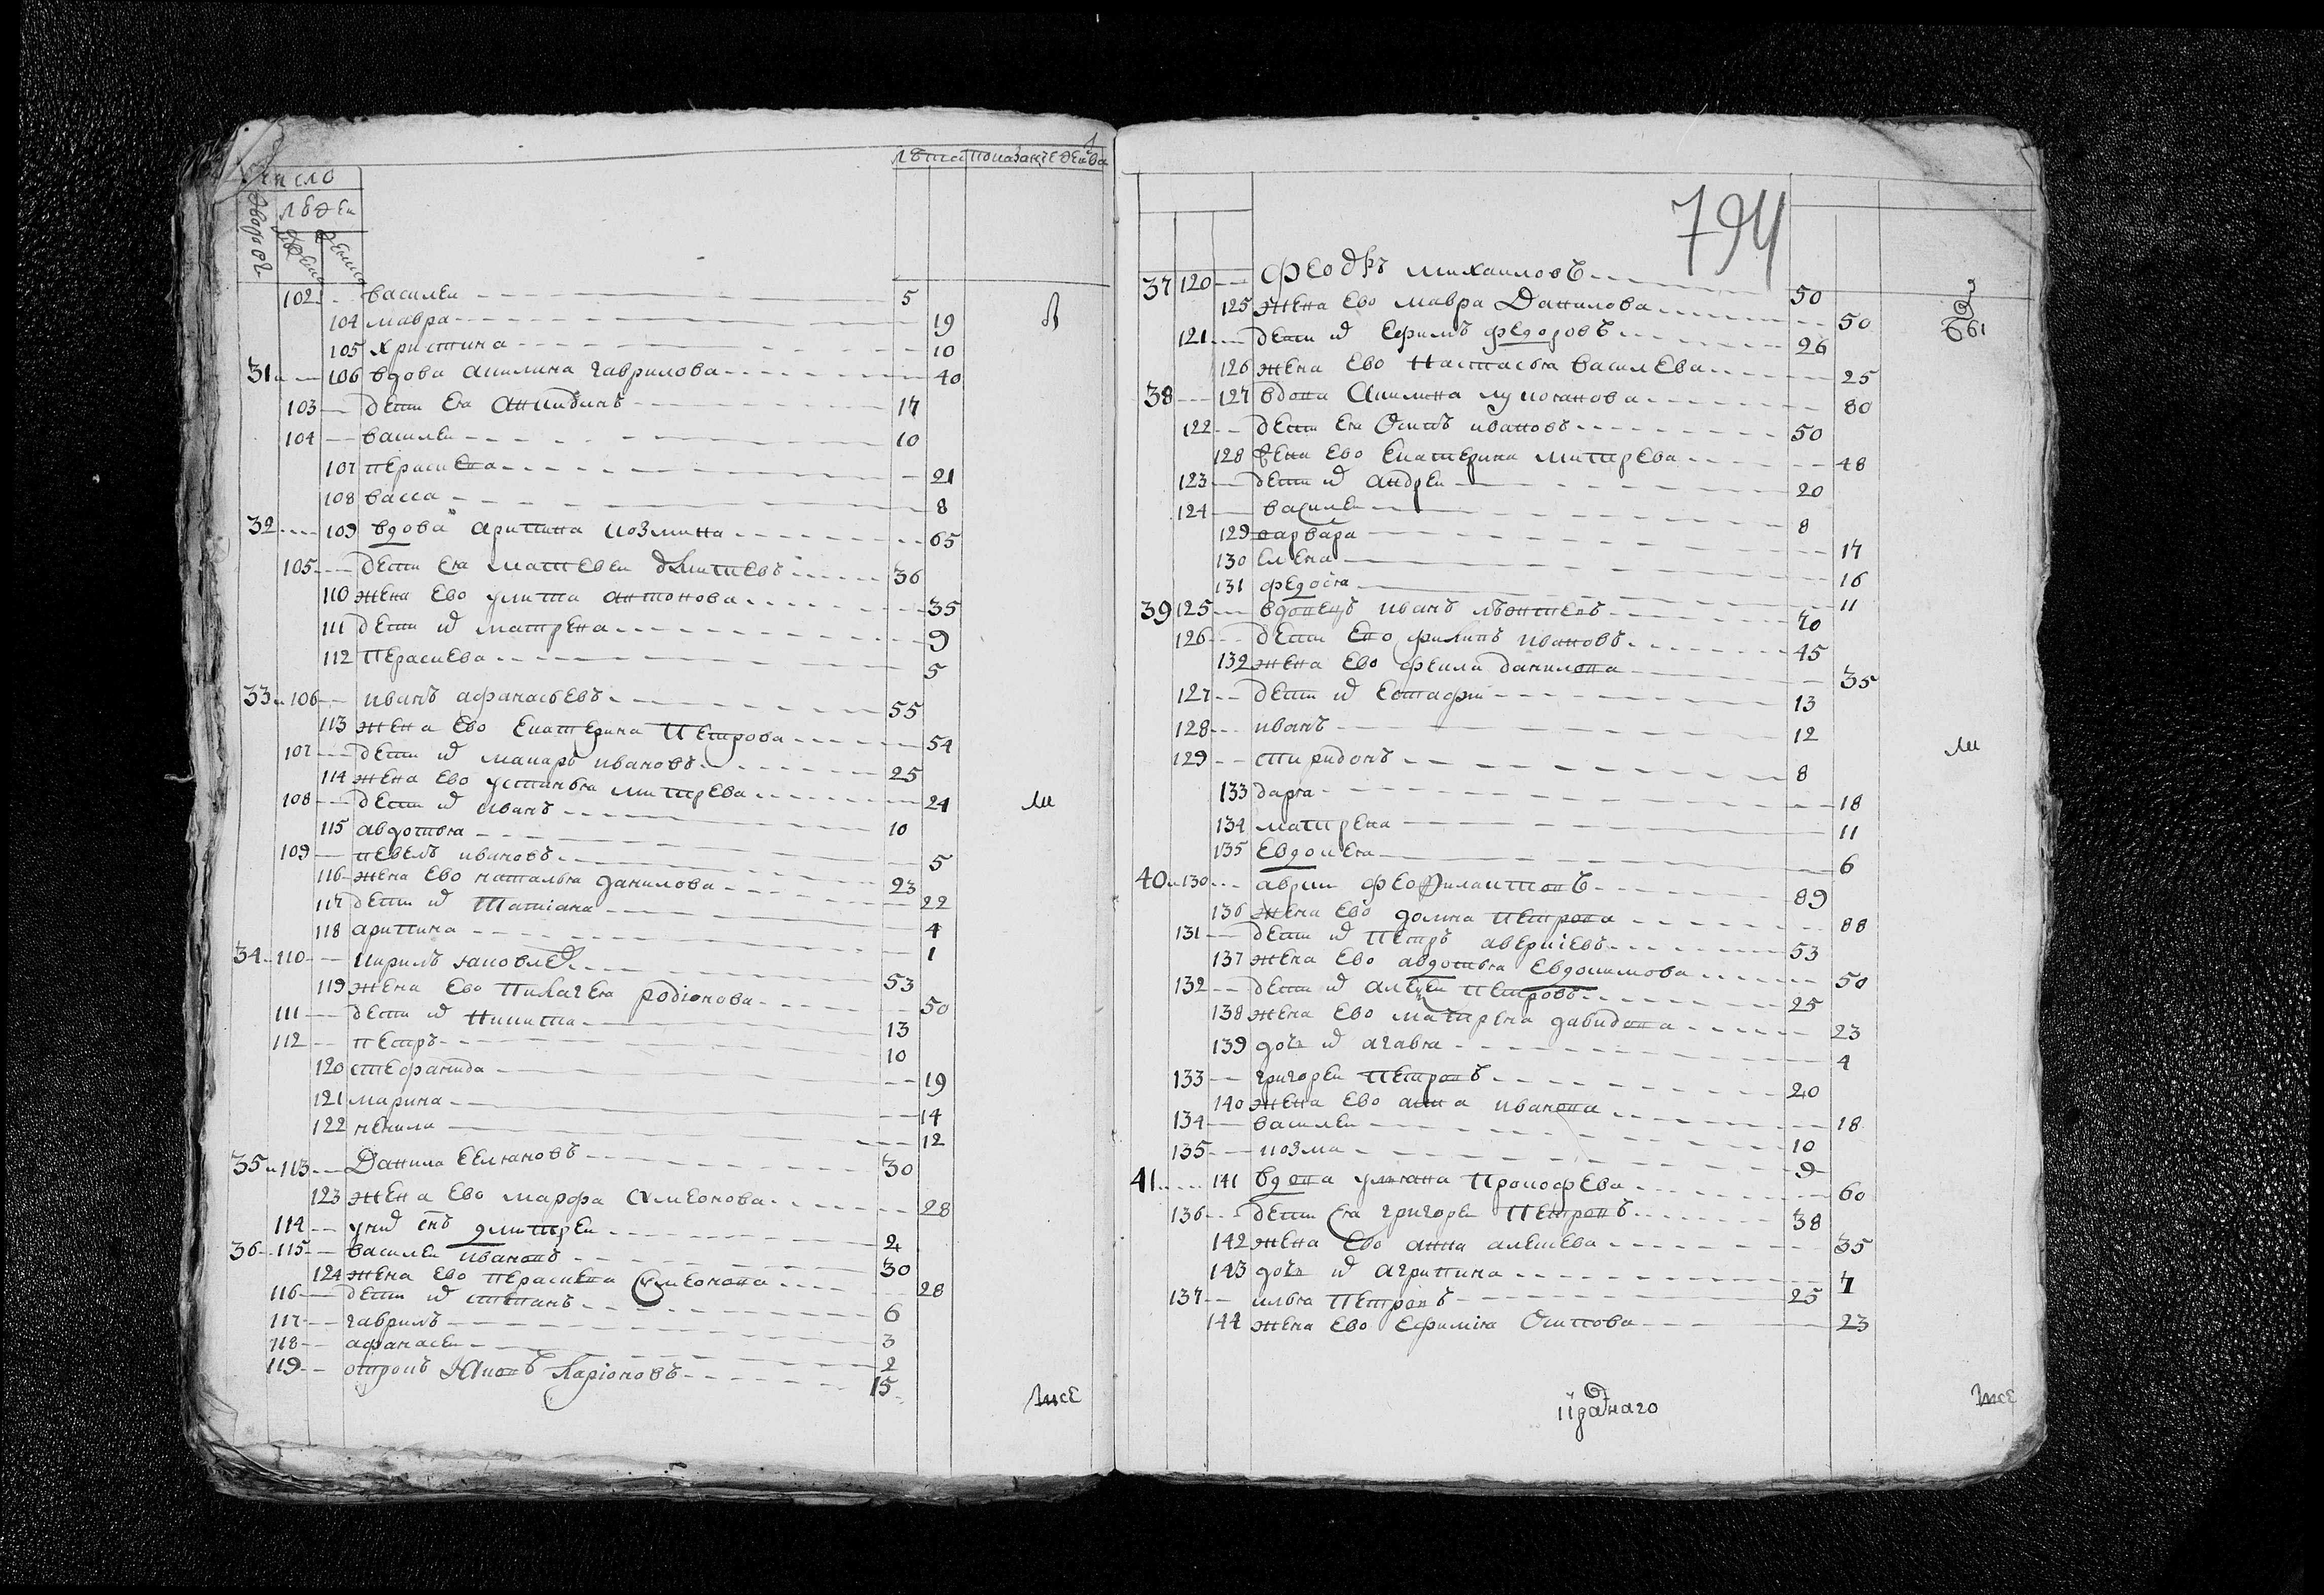 Число лѣта показаніе
дворовъ людеи
102 василеи 5
104 мавра 19
105 христина 10
31 106 вдова акилина гаврилова 40
103 дети ея 17
104 василеи 10
107 параскева 21
108 васса 8
32 109 вдова арипина козмина 65
105 дети ея матвеи 36
110 жена ево улита антонова 35
111 дети их матрена 9
112 параскева 5
33 106 иванъ афанасьевъ 55
113 жена ево екатерина петрова 54
107 дети их макаръ ивановъ 25
114 жена ево устинья митрева 24
108 дети их иванъ 10
115 авдотья 5
109 павелъ ивановъ 23
116 жена ево наталья данилова 22
117 дети их татиана 4
118 арипина 1
34 110 кирилъ яковлев 53
119 жена ево пилагея родионова 50
111 дети их никита 13
112 петръ 10
120 стефанида 19
121 марина 14
122 ненила 12
35 113 Данила 30
123 жена ево марфа симеонова 28
114 у них снъ дмитреи 2
36 115 василеи ивановъ 30
124 жена ево параскева симеонова 28
116 дети их степанъ 6
117 гаврилъ 3
118 афанасеи 2
119 отрокъ Ларіоновъ 15
794
37 120 Феодоръ михаиловъ 50
125 жена ево мавра Данилова 50
121 дети их ефимъ федоровъ 26
126 жена ево настасья василева 25
38 127 вдова Акилина лукоянова 80
122 дети ея Осипъ ивановъ 50
128 жена ево екатерина митрева 48
123 дети их андреи 20
124 василеи 8
129 варвара 17
130 елена 16
131 федосья 11
39 125 вдовецъ иванъ 70
126 дети ево филипъ ивановъ 45
132 жена ево фекла данилова 35
127 дети их естафии 13
128 иванъ 12
129 спиридонъ 8
133 дарья 18
134 матрена 11
135 евдокея 6
40 130 феофилактовъ 89
136 жена ево домна петрова 88
131 дети их петръ аверкіевъ 53
137 жена ево авдотья евдокимова 50
132 дети их алексеи петровъ 25
138 жена ево матрена давидова 23
139 дочь их агавья 4
133 григореи петровъ 20
140 жена ево анна иванова 18
134 василеи 10
135 козма 9
41 141 вдова ульяна прокофева 60
136 дети ея григореи петровъ 38
142 жена ево анна алексева 35
143 дочь их агрипина 7
137 илья петровъ 25
144 жена ево ефимия Осипова 23